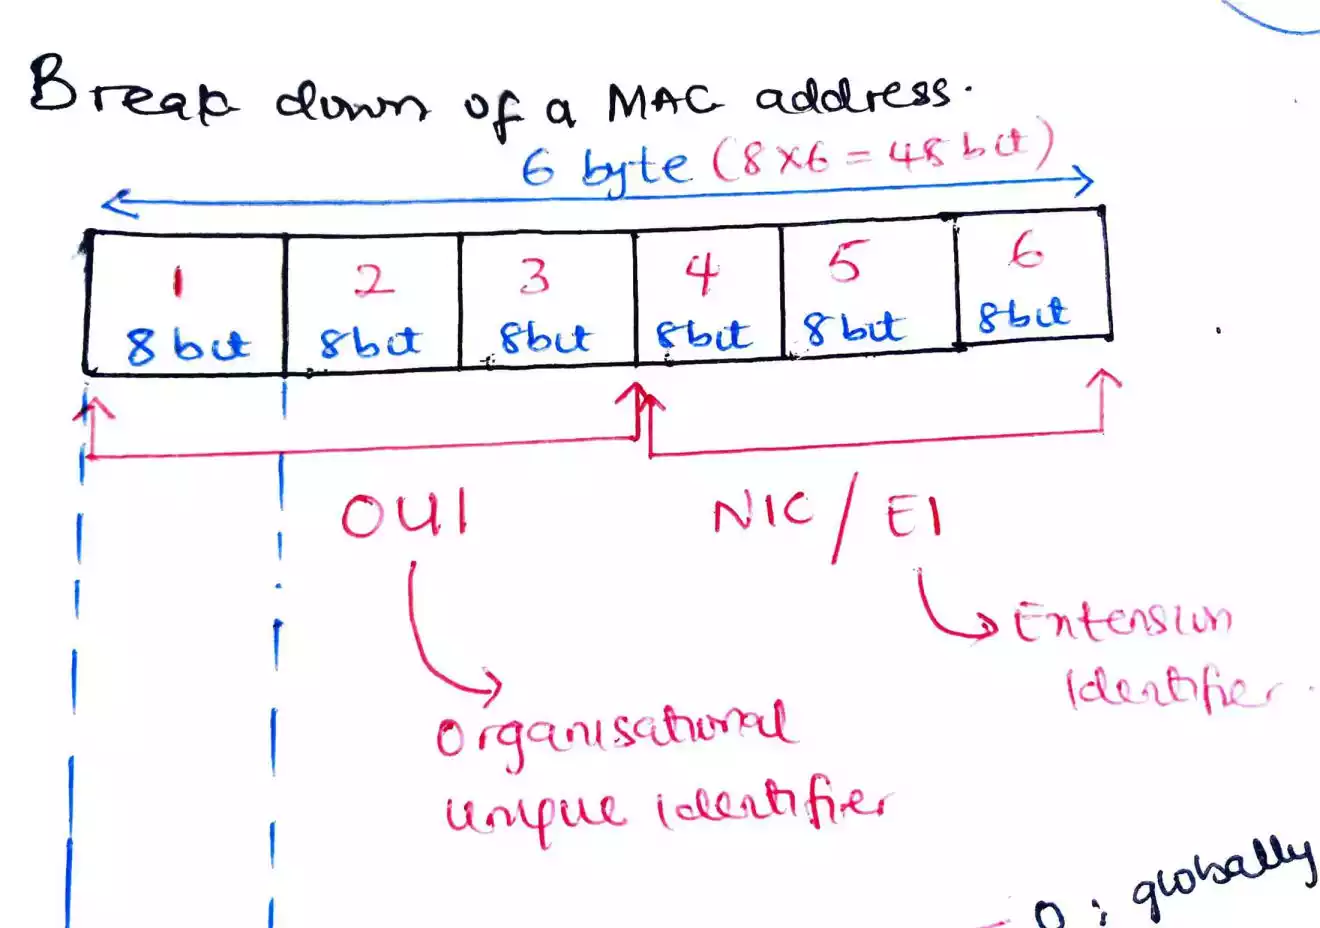 Break down of a MAC address.
6 byte (8×6 = 48 bit)
1 2 3 4 5 6
8 bit 8bit 8bit 8bit 8bit 8bit
OUI NIC / EI
Extension
Identifier.
Organisational
unique identifier
0 : globally